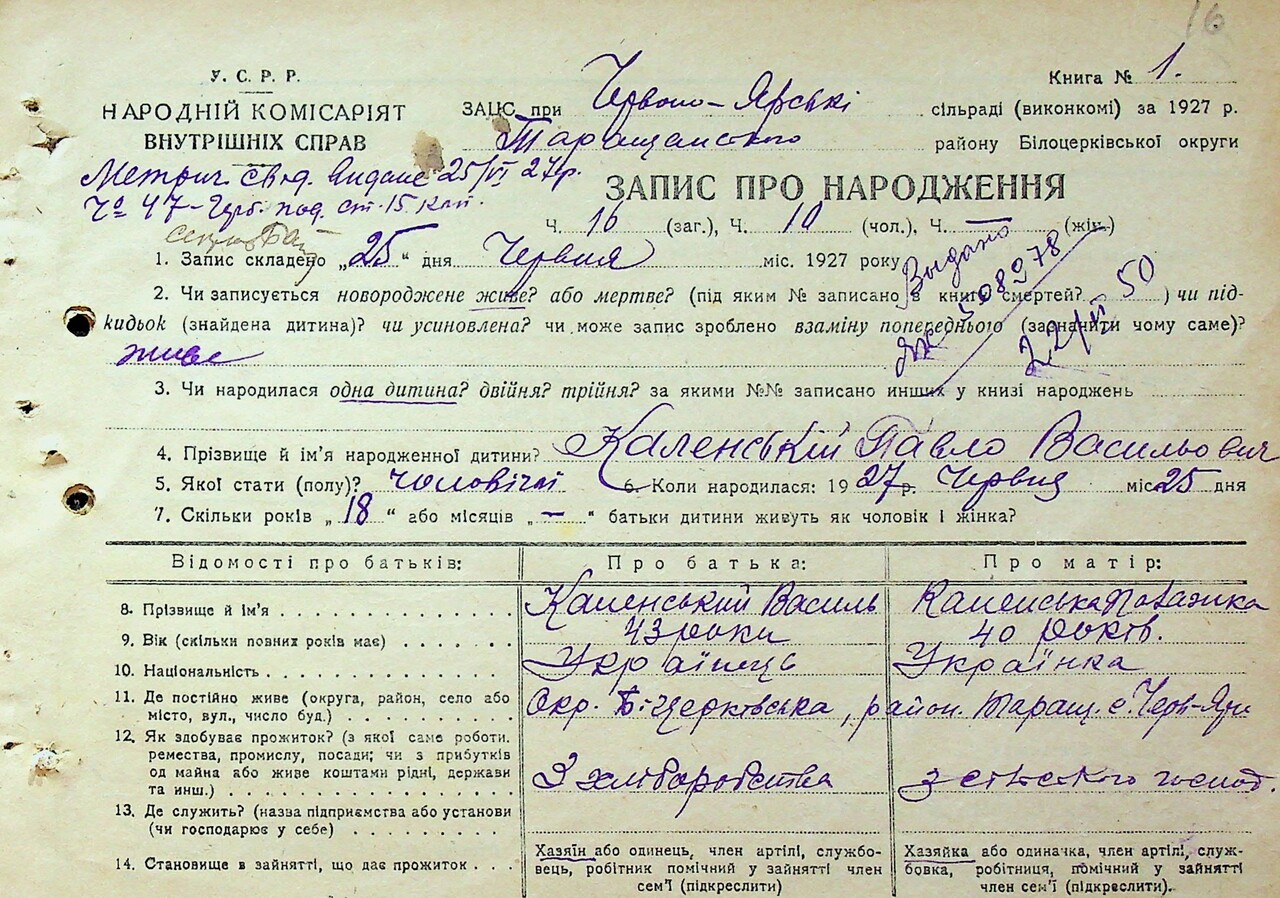 16
У. С. Р. Р.
НАРОДНІЙ КОМІСАРІЯТ
ВНУТРІШНІХ СПРАВ
Книга № 1.
ЗАЦС при Червоно-Ярські сільраді (виконкомі) за 1927 р.
Таращанського району Білоцерківської округи
Метрич. свід. видане 25/VI 27 р.
Ч° 47 - Герб. под. ст. 15 коп.
ЗАПИС ПРО НАРОДЖЕННЯ
Ч. 16 (заг.), Ч. 10 (чол.), Ч. — (жін.)
1. Запис складено „25" дня Червня міс. 1927 року
Выдано
508978
50
2. Чи записується новороджене живе? або мертве? (під яким № записано в книгі смертей? ) чи під-
кидьок (знайдена дитина)? чи усиновлена? чи може запис зроблено взаміну попереднього (зазначити чому саме)?
живе
3. Чи народилася одна дитина? двійня? трійня? за якими №№ записано инших у книзі народжень
4. Прізвище й ім'я народженної дитини? Каленській Павло Васильович
5. Якої стати (полу)? чоловічої 6. Коли народилася: 1927 р. Червня міс. 25 дня
7. Скільки років „18" або місяців „—" батьки дитини живуть як чоловік і жінка?
Відомості про батьків: Про батька: Про матір:
8. Прізвище й ім'я Каленський Василь Каленська
9. Вік (скільки повних років має) 43 роки 40 років.
10. Національність Українець Українка
11. Де постійно живе (округа, район, село або
місто, вул., число буд.) Окр. Б-Церковська, район. Таращ. с. Черв-Яр
12. Як здобуває прожиток? (з якої саме роботи.
ремества, промислу, посади; чи з прибутків
од майна або живе коштами рідні, держави
та инш.) З хліборобства з сільського господ.
13. Де служить? (назва підприємства або установи
(чи господарює у себе)
14. Становище в зайнятті, що дає прожиток
Хазяїн або одинець, член артілі, службо-
вець, робітник помічний у зайнятті член
сем'ї (підкреслити)
Хазяйка або одиначка, член артілі, служ-
бовка, робітниця, помічний у зайнятті
член сем'ї (підкреслити).